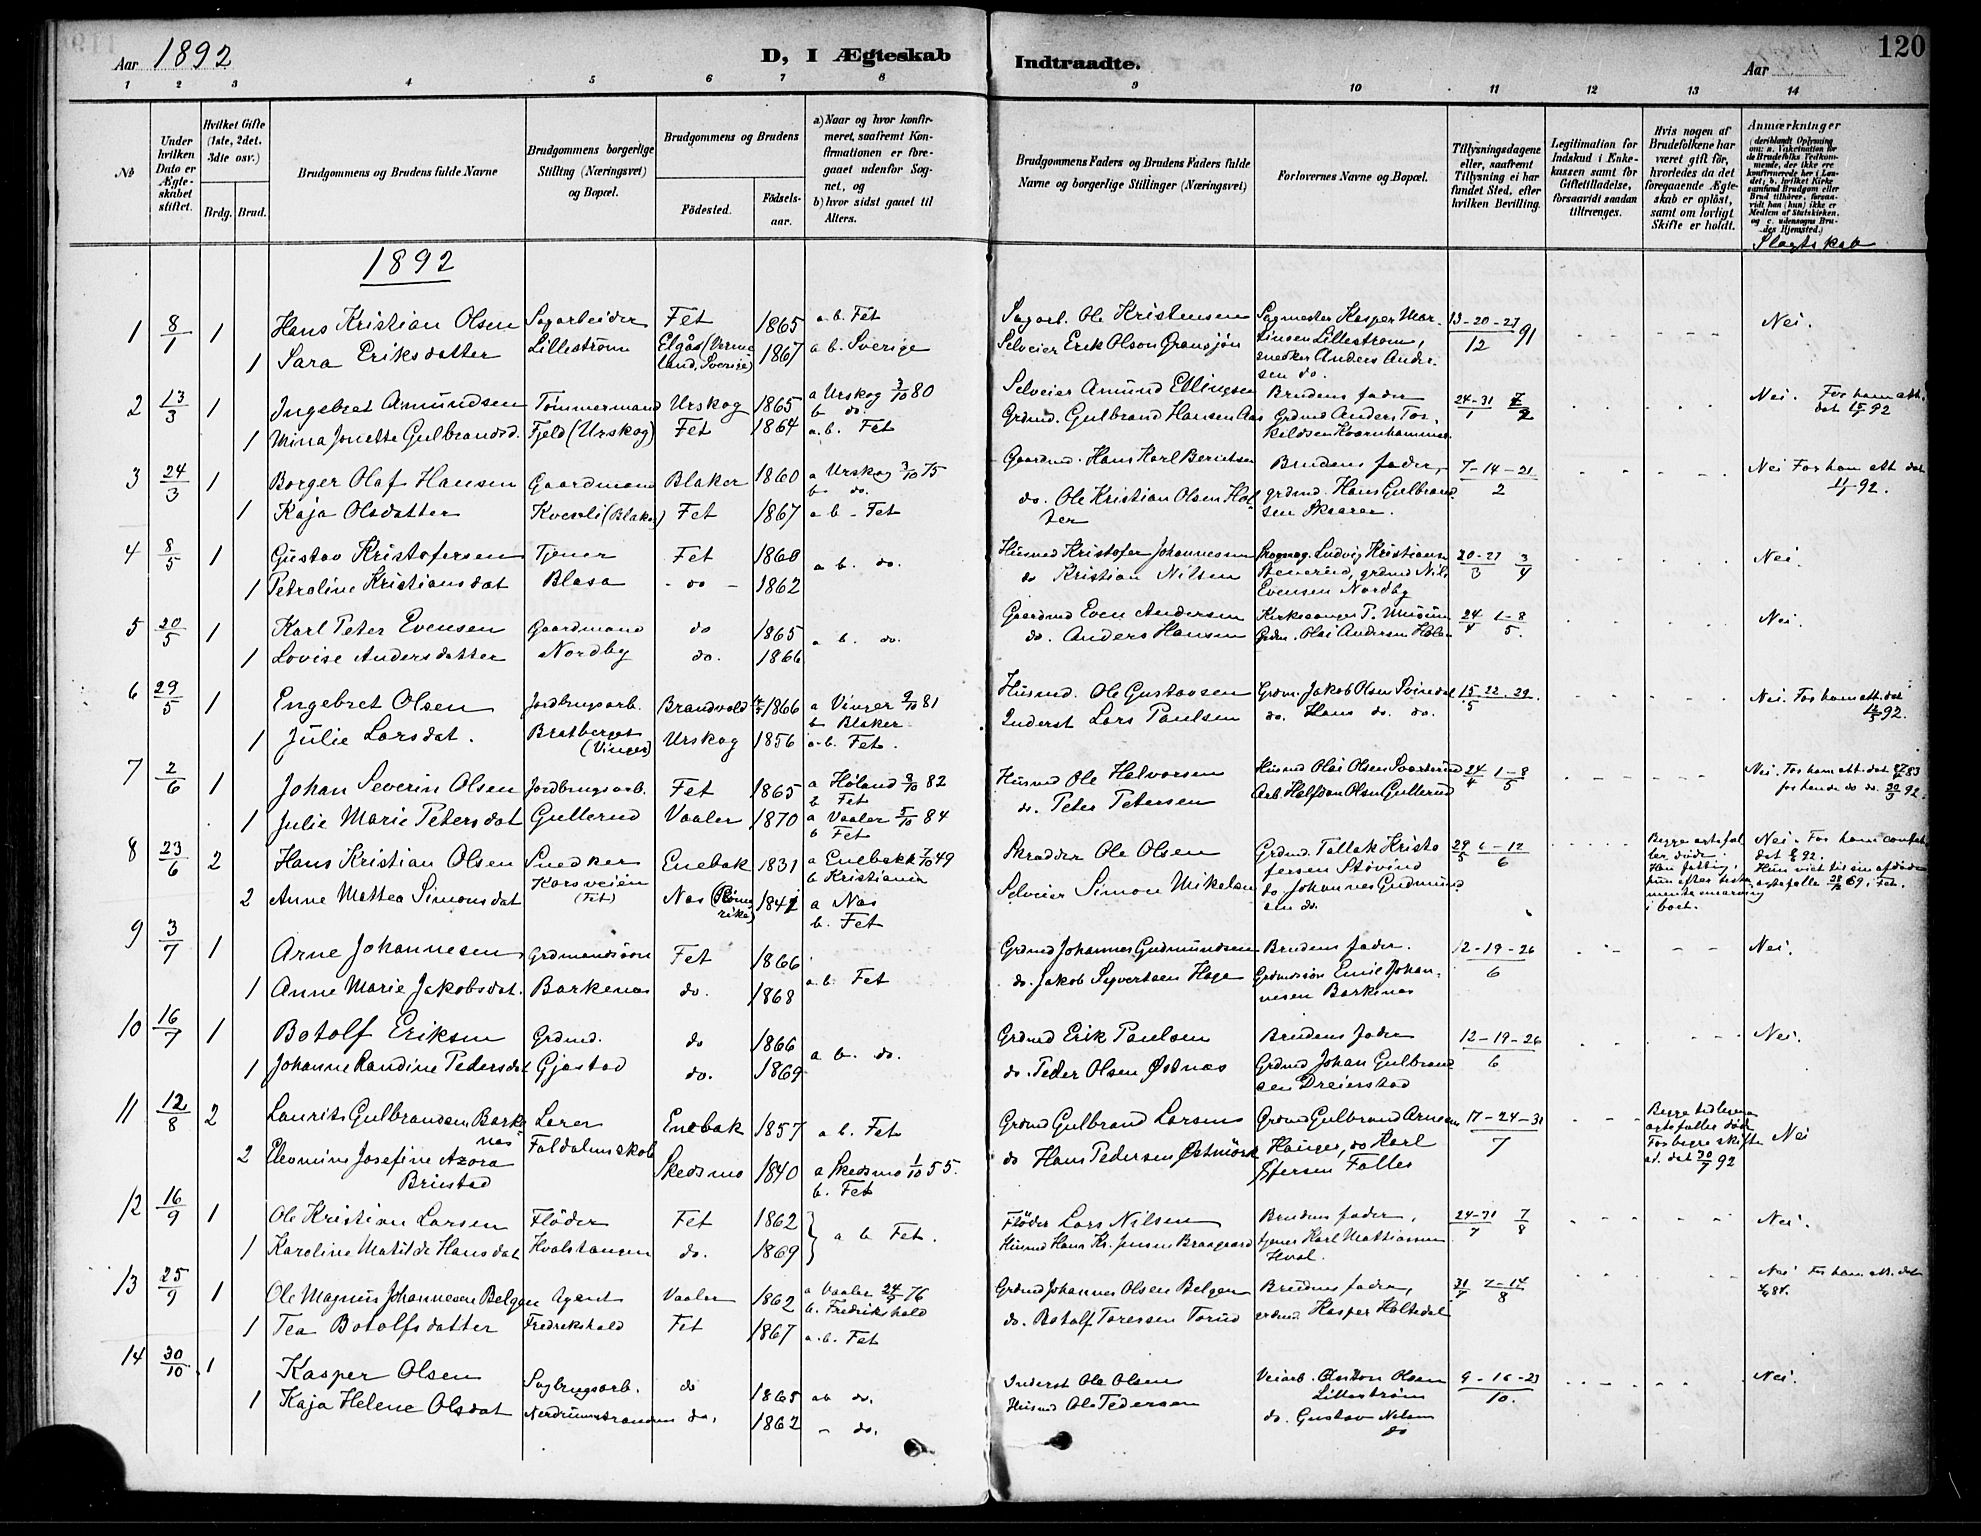 120
Aar 1892
D, I Ægteskab Indtraadte.
Aar
1 2 3 4 5 6 7 8 9 10 11 12 13 14
No
Under hvilken Dato er Ægteskabet stiftet.
Hvilket Gifte (1ste, 2det, 3die osv.)
Brdg. Brud.
Brudgommens og Brudens fulde Navne
Brudgommens borgerlige Stilling (Næringsvei) og Bopæl.
Brudgommens og Brudens
Födested.
Födselsaar.
a) Naar og hvor konfirmeret, saafremt Konfirmationen er foregaaet udenfor Sognet, og
b) hvor sidst gaaet til Alters.
Brudgommens Faders og Brudens Faders fulde Navne og borgerlige Stillinger (Næringsvei)
Forlovernes Navne og Bopæl.
Tillysningsdagene eller, saafremt Tillysning ei har fundet Sted, efter hvilken Bevilling.
Legitimation for Indskud i Enkekassen samt for Giftetilladelse, forsaavidt saadan tiltrænges.
Hvis nogen af Brudefolkene har været gift för, hvorledes da det foregaaende Ægteskab er oplöst, samt om lovligt Skifte er holdt.
Anmærkninger
(deriblandt Oplysning om: a. Vakcination for de Brudefolks Vedkommende, der ikke ere konfirmerede her i Landet; b. hvilket Kirkesamfund Brudgom eller Brud tilhörer, forsaavidt han (hun) ikke er Medlem af Statskirken, og c. udensogns Brudes Hjemsted.)
Slagtskab
1892
1 8/1 1 Hans Kristian Olsen Sagarbeider Fet 1865 a.b. Fet Sagarb. Ole Kristensen Sagmester Kasper Mar- 13-20-27/12 91 Nei.
1 Sara Eriksdatter Lillestrøm Elgås (Verme 1867 a b. Sverige Selveier Erik Olson Gransjön tinsen Lillestrøm,
land, Sverige) snedker Anders Ander-
sen do.
2 13/3 1 Ingebret Amundsen Tømmermand Urskog 1865 a Urskog 3/10 80 Selveier Amund Ellingsen Brudens fader 24-31/1 7/2 Nei. For ham att.
b do. dat 15/1 92
1 Mina Jonette Gulbrandsd. Fjeld (Urskog) Fet 1864 a.b. Fet Grdmd. Gulbrand Hansen Aas Grdmd Anders Tor-
keldsen Kvernhammer
3 24/3 1 Borger Olaf Hansen Gaardmand Blaker 1860 a Urskog 3/10 75 Gaardmd. Hans Karl Berntsen Brudens fader, 7-14-21/2 Nei For ham att dat
b do. 11/1 92.
1 Kaja Olsdatter Kvevli (Blaker) Fet 1867 a b - Fet do. Ole Kristian Olsen Hol- grdmd. Hans Gulbrand
ter sen Skaarer.
4 8/5 1 Gustav Kristofersen Tjener Fet 1860 a b. do. Husmd Kristofer Johannessen Skogvog. Ludvig Kristiansen 20-27/3 3/4 Nei.
1 Petroline Kristiansdat Blasa - do - 1862 do Kristian Nilsen Stenerud, grdmd Nils
Evensen Nordby
5 20/5 1 Karl Peter Evensen Gaardmand do 1865 a b. do. Gaardmd Even Andersen Kirkesanger P. Musum 24/4 1-8/5. Nei.
1 Lovise Andersdatter Nordby do. 1866 do. Anders Hansen Grdm. Olai Andersen Holm
6 29/5 1 Engebret Olsen Jordbrugsarb. Brandvold 1866 a Vinger 9/10 81 Husmd. Ole Gustavsen Grdm. Jakob Olsen Svinedal 15.22.29./5 Nei. For ham att. dat
b Blaker 92.
1 Julie Larsdat. Bratberget Urskog 1856 a.b. Fet. Inderst Lars Paulsen do. Hans do. do.
(Vinger)
7 2/6 1 Johan Severin Olsen Jordbrugsarb. Fet 1865 a Høland 8/10 82 Husmd Ole Halvorsen Husmd Olai Olsen Svarterud 24/4 1-8/5 Nei. For ham att. dat 83
b Fet for hende do do. 30/3 92.
1 Julie Marie Petersdat Gullerud Vaaler 1870 a Vaaler 5/10 84 do. Peter Petersen Arb. Halfdan Olsen Gullerud
b Fet
8 23/6 2 Hans Kristian Olsen Snedker Enebak 1831 a Enebakk 7/10 49 Skrædder Ole Olsen Grdmd. Tollak Kristo 29/5 6-12/6 Begge ægtefæl Nei. For ham
b Kristiania fersen Støvind ler døde. dat 92.
2 Anne Mattea Simonsdat Korsveien Nas (Rome 1841 a Nas Selveier Simon Mikelsen do Johannes Gudmund Han fattig, Hun viet til sin afdøde
(Fet) rike) b. Fet sen do. hun efter testa ægtefælle 28 69 i Fet.
i boet.
9 3/7 1 Arne Johannesen Grdmandssøn Fet 1866 Grdmd Johannes Gudmundsen Brudens fader. 12-19-26/6 Nei.
1 Anne Marie Jakobsdat. Barkenas do. 1868 a.b. Fet do. Jakob Syvertsen Hage Grdmdssøn Emil Johan-
nesen Barkenas
10 16/7 1 Botolf Eriksen Grdmd. do 1866 a b. do. Grdmd Erik Paulsen Brudens fader 12-19-26/6 Nei.
1 Johanne Randine Pedersdat Gjøstad do. 1869 do. Peder Olsen Østnæs Grdmd Johan Gulbrand
sen Dreierstad
11 12/8 2 Laurits Gulbrandsen Barke Lærer Enebak 1857 a b. Fet Grdmd Gulbrand Larsen Grdmd Gulbrand Arnesen 17-24-31/7 Begge tidligere Nei
nas Faldalenskob ægtefæller døde
2 Eleonine Josefine Azora Skedsmo 1840 a Skedsmo 1/10 55. do Hans Pedersen Østmörk Hauger, do Karl For begge skifte
Briestad b. Fet Ifersen Falles at. dat 30/7 92
12 16/9 1 Ole Kristian Larsen Fløder Fet 1862 a b Fet. Fløder Lars Nilsen Brudens fader, 24-31/7 7/8 Nei.
1 Karoline Matilde Hansdat Hvalstangen do. 1869 Husmd Hans Kr. Jensen Braagaard tjener Karl Mattiassen
Hval.
13 25/9 1 Ole Magnus Johannesen Belgen Agent Vaaler 1862 a Vaaler 24/9 76 Grdmd Johannes Olsen Belgen Brudens fader, 31/7 7-14/8 Nei For ham att. dat
b. Fredrikshald 81.
1 Tea Botolfsdatter Fredrekshald Fet 1867 a.b. Fet do. Botolf Toressen Torud grdmd. Kasper Holtedal
14 30/10 1 Kasper Olsen Sagbrugsarb. do 1865 ab do. Inderst Ole Olsen Veiarb. Anton Olsen 9-16-23/10. Nei.
Lillestrøm
1 Kaja Helene Olsdat Nerdrumstranden do. 1862 - do. Husmd Ole Pedersen do. Gustav Nilsen
do